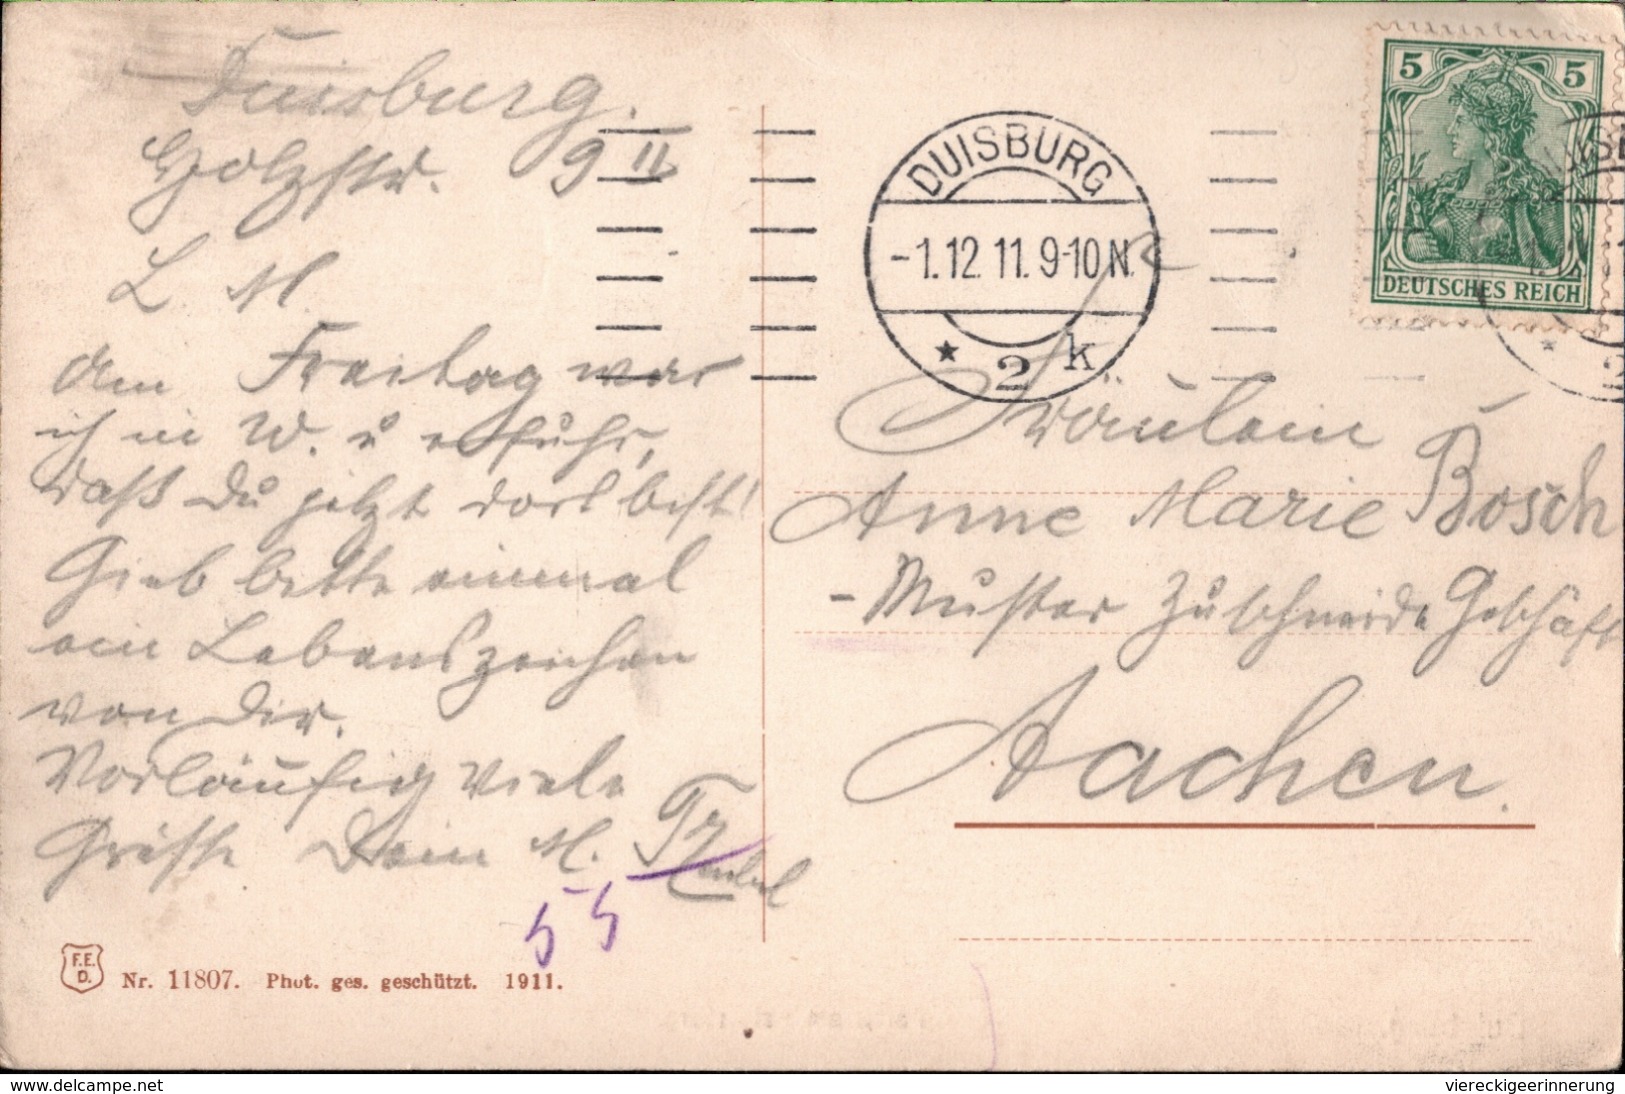 Duisburg.
Holzstr. 9 II
L. M.
Am Freitag war
ich in W. u erfuhr,
daß Du jetzt dort bist!
Gieb bitte einmal
ein Lebenszeichen
von Dir.
Vorläufig viele
Grüße Dein M.
55
F.E.
D.
Nr. 11807. Phot. ges. geschützt. 1911.
DUISBURG
-1.12.11.9-10N.
* 2 k
5 5
DEUTSCHES REICH
Fräulein
Anne Marie Bosch
- Muster Zuschneide Geschäft
Aachen.
www.delcampe.net
viereckigeerinnerung